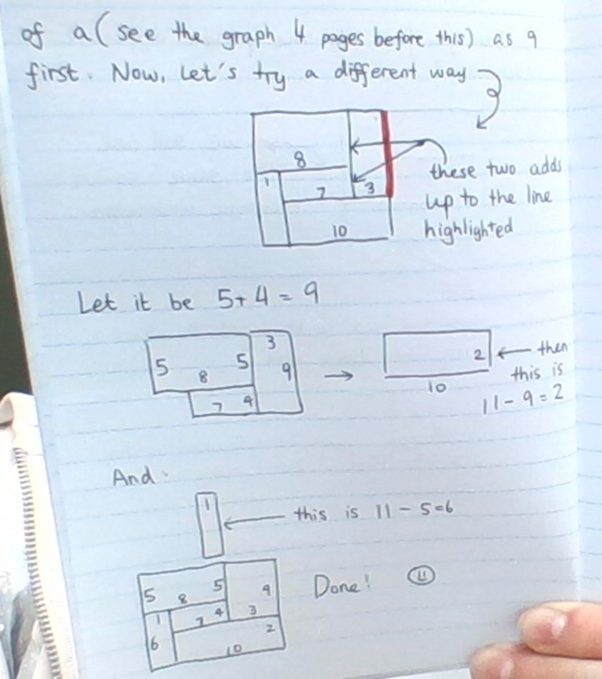 of a (see the graph 4 pages before this) as 9
first. Now, let's try a different way
8
1
7
3
10
these two adds
up to the line
highlighted
Let it be 5+4=9
5
8
5
3
9
7
4
2
10
then
this is
11-9=2
And.
1
this is 11-5=6
5
8
5
9
1
7
4
3
6
10
2
Done!